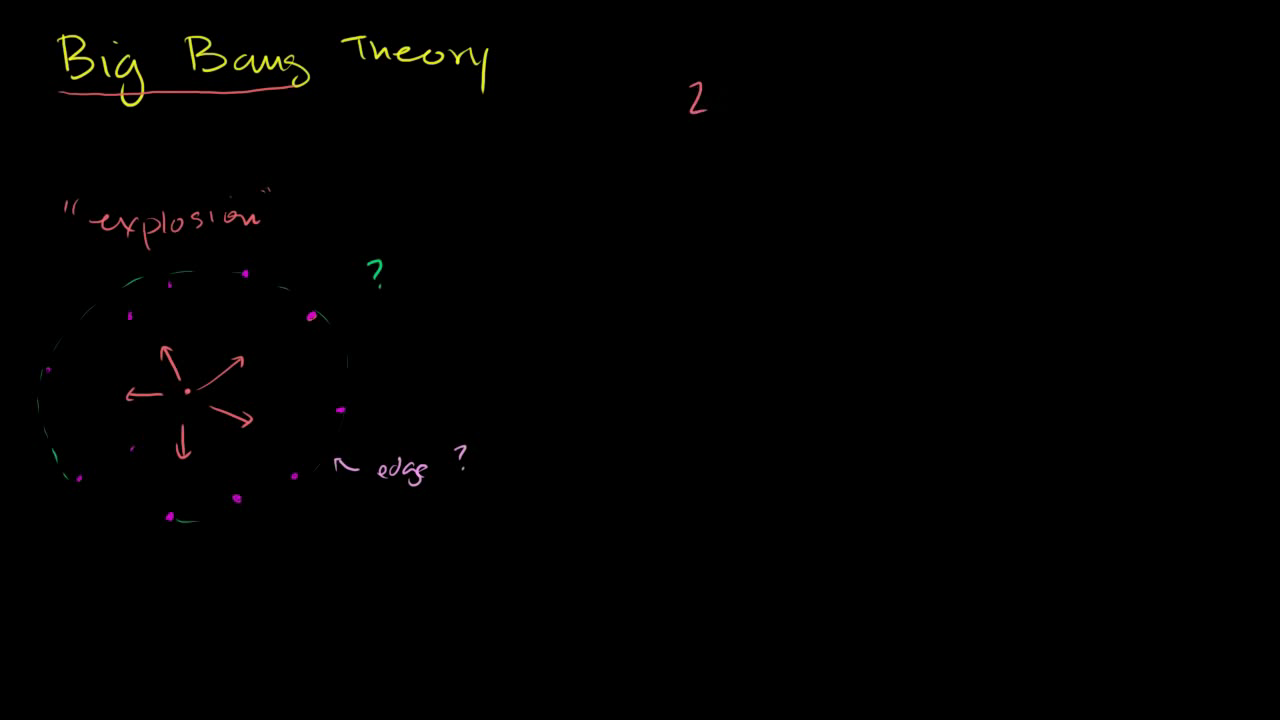 Big Bang Theory
2
"explosion"
?
edge ?